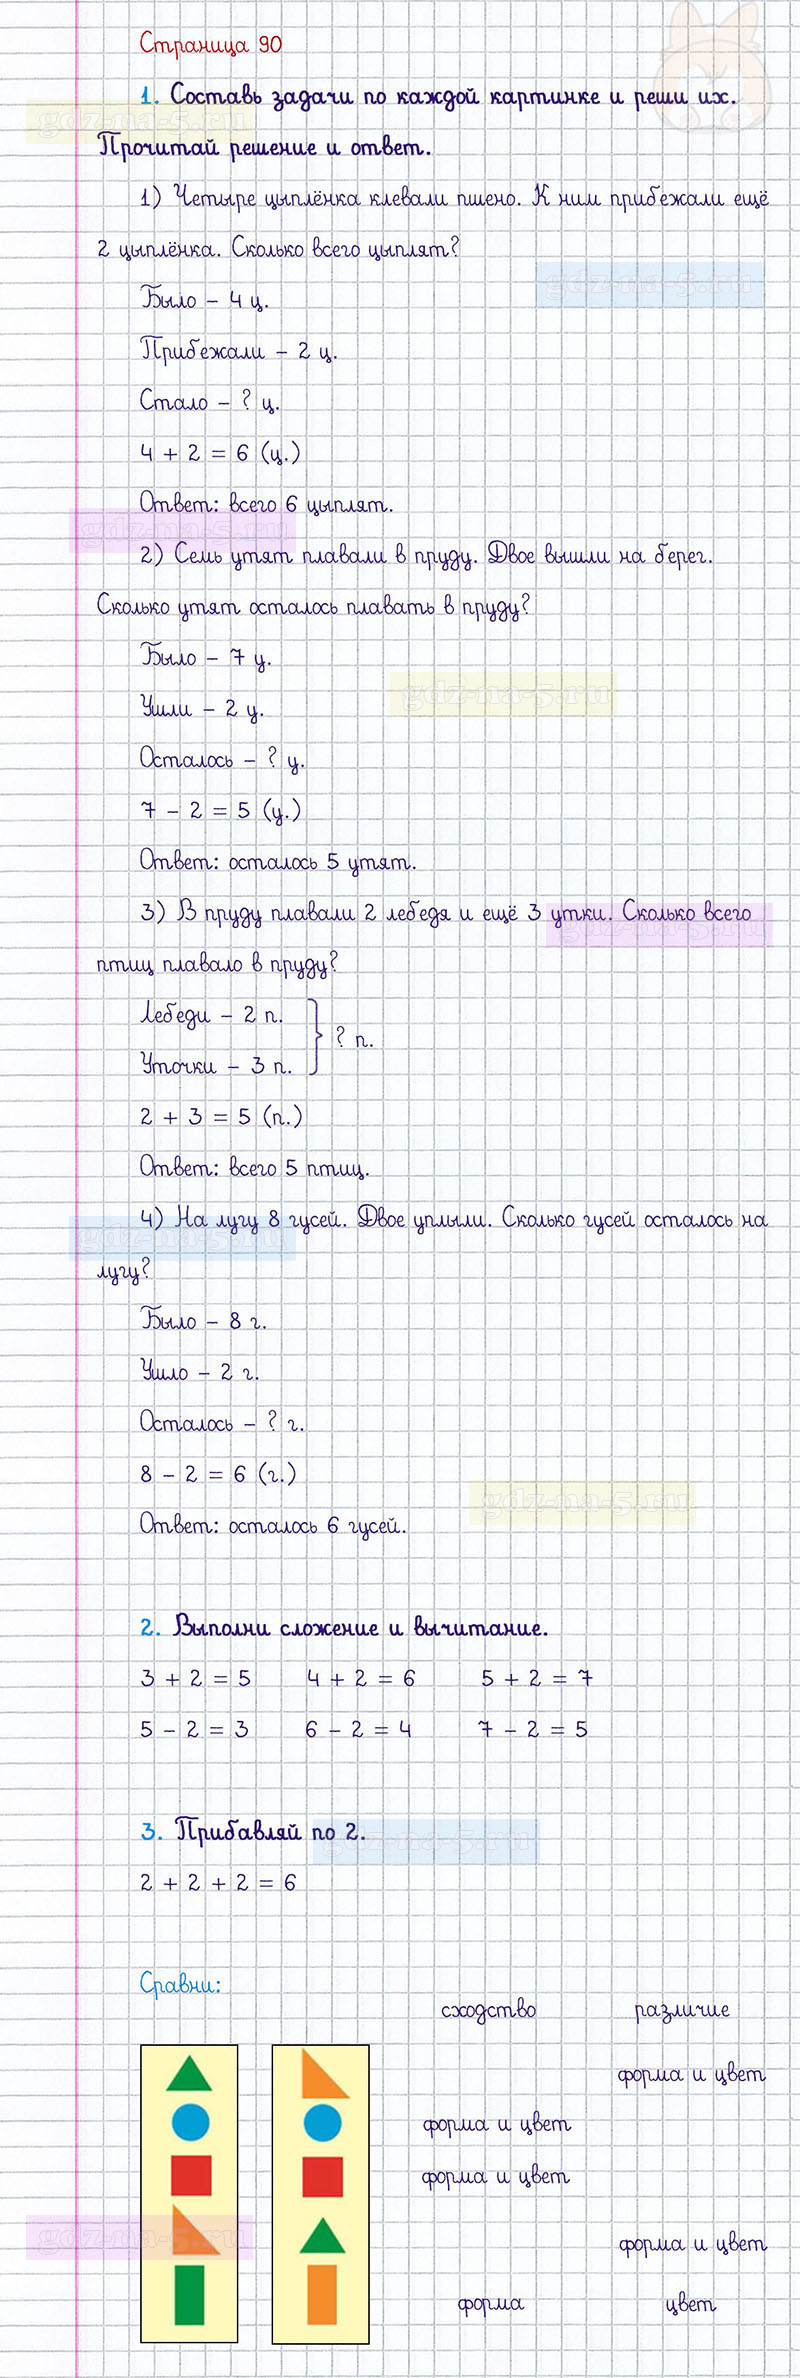 Страница 90
1. Составь задачи по каждой картинке и реши их.
gdz-na-5.ru
Прочитай решение и ответ.
1) Четыре цыплёнка клевали пшено. К ним прибежали ещё
2 цыплёнка. Сколько всего цыплят?
gdz-na-5.ru
Было – 4 ц.
Прибежали – 2 ц.
Стало – ? ц.
4 + 2 = 6 (ц.)
Ответ: всего 6 цыплят.
gdz-na-5.ru
2) Семь утят плавали в пруду. Двое вышли на берег.
Сколько утят осталось плавать в пруду?
Было – 7 у.
gdz-na-5.ru
Ушли – 2 у.
Осталось – ? у.
7 – 2 = 5 (у.)
Ответ: осталось 5 утят.
3) В пруду плавали 2 лебедя и ещё 3 утки. Сколько всего
gdz-na-5.ru
птиц плавало в пруду?
Лебеди – 2 п.
? п.
Уточки – 3 п.
2 + 3 = 5 (п.)
Ответ: всего 5 птиц.
4) На лугу 8 гусей. Двое уплыли. Сколько гусей осталось на
gdz-na-5.ru
лугу?
Было – 8 г.
Ушло – 2 г.
Осталось – ? г.
8 – 2 = 6 (г.)
gdz-na-5.ru
Ответ: осталось 6 гусей.
2. Выполни сложение и вычитание.
3 + 2 = 5 4 + 2 = 6 5 + 2 = 7
5 – 2 = 3 6 – 2 = 4 7 – 2 = 5
3. Прибавляй по 2.
gdz-na-5.ru
2 + 2 + 2 = 6
Сравни:
сходство различие
форма и цвет
форма и цвет
форма и цвет
gdz-na-5.ru
форма и цвет
форма цвет